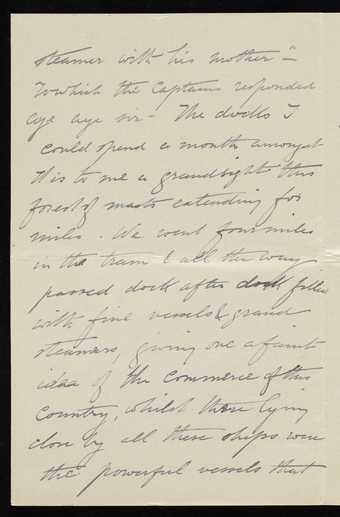 steamer with his mother"—
To which the Captain responded
aye aye sir— The docks I
could spend a month amongst
It is to me a grand sight this
forest of masts extending for
miles. We went four miles
in the tram & all the way
passed dock after dock filled
with fine vessels & grand
steamers, giving one a faint
idea of the commerce of this
Country, whilst there lying
close by all these ships were
the powerful vessels that